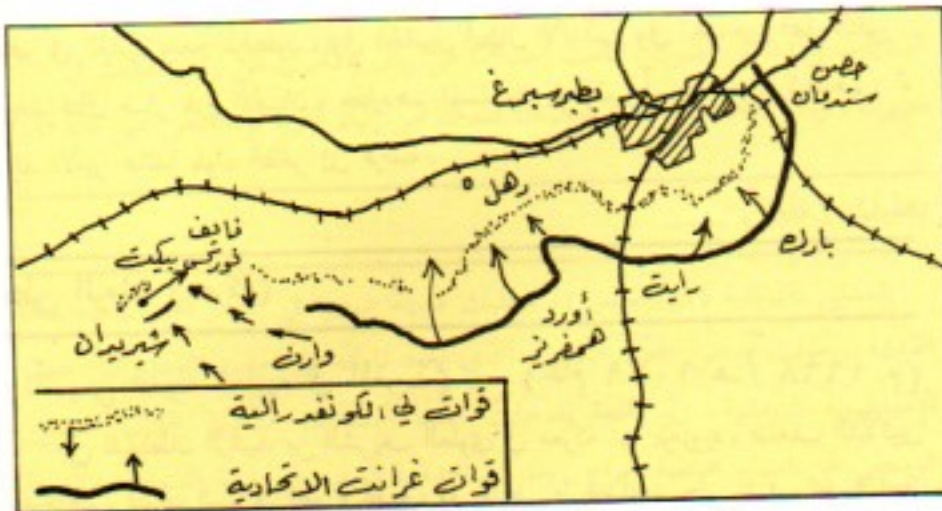 حصن
ستدمان
بطبرسبرغ
دهل
بارك
رايت
أورد
همفريز
فايف
فوركس بيكت
وارن
شيريدان
قوات لي الكونفدرالية
قوات غرانت الاتحادية